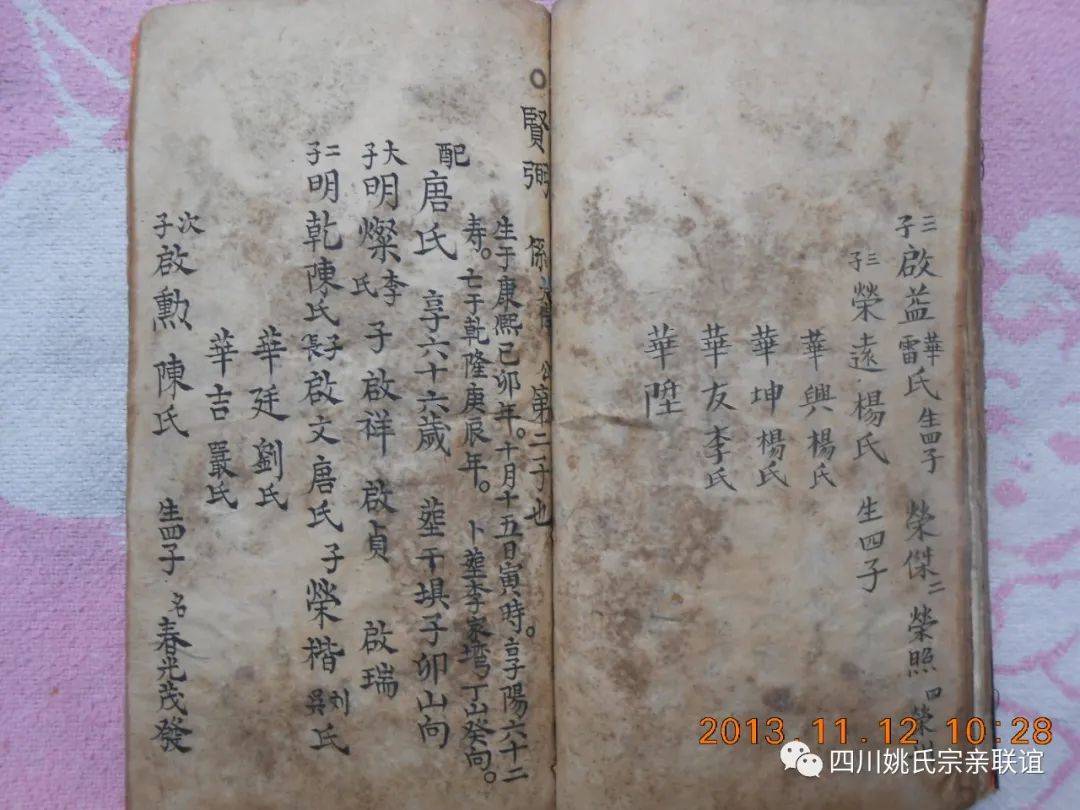 三子啟益華雷氏生四子 榮傑二 榮照四榮
三子榮遠楊氏 生四子
華興楊氏
華坤楊氏
華友李氏
華陞
○賢弼 係 公第二子也
生于康熙己卯年。十月十五日寅時。享陽六十二
寿。亡于乾隆庚辰年。 卜塟李家塆丁山癸向。
配唐氏 享六十六歲 塟干垻子卯山向
大子明燦李氏 子啟祥 啟貞 啟瑞
二子明乾陳氏長子啟文唐氏子榮楷刘吳氏
華廷劉氏
華吉嚴氏
次子啟勳 陳氏 生四子 名春光茂發
2013.11.12 10:28
四川姚氏宗亲联谊